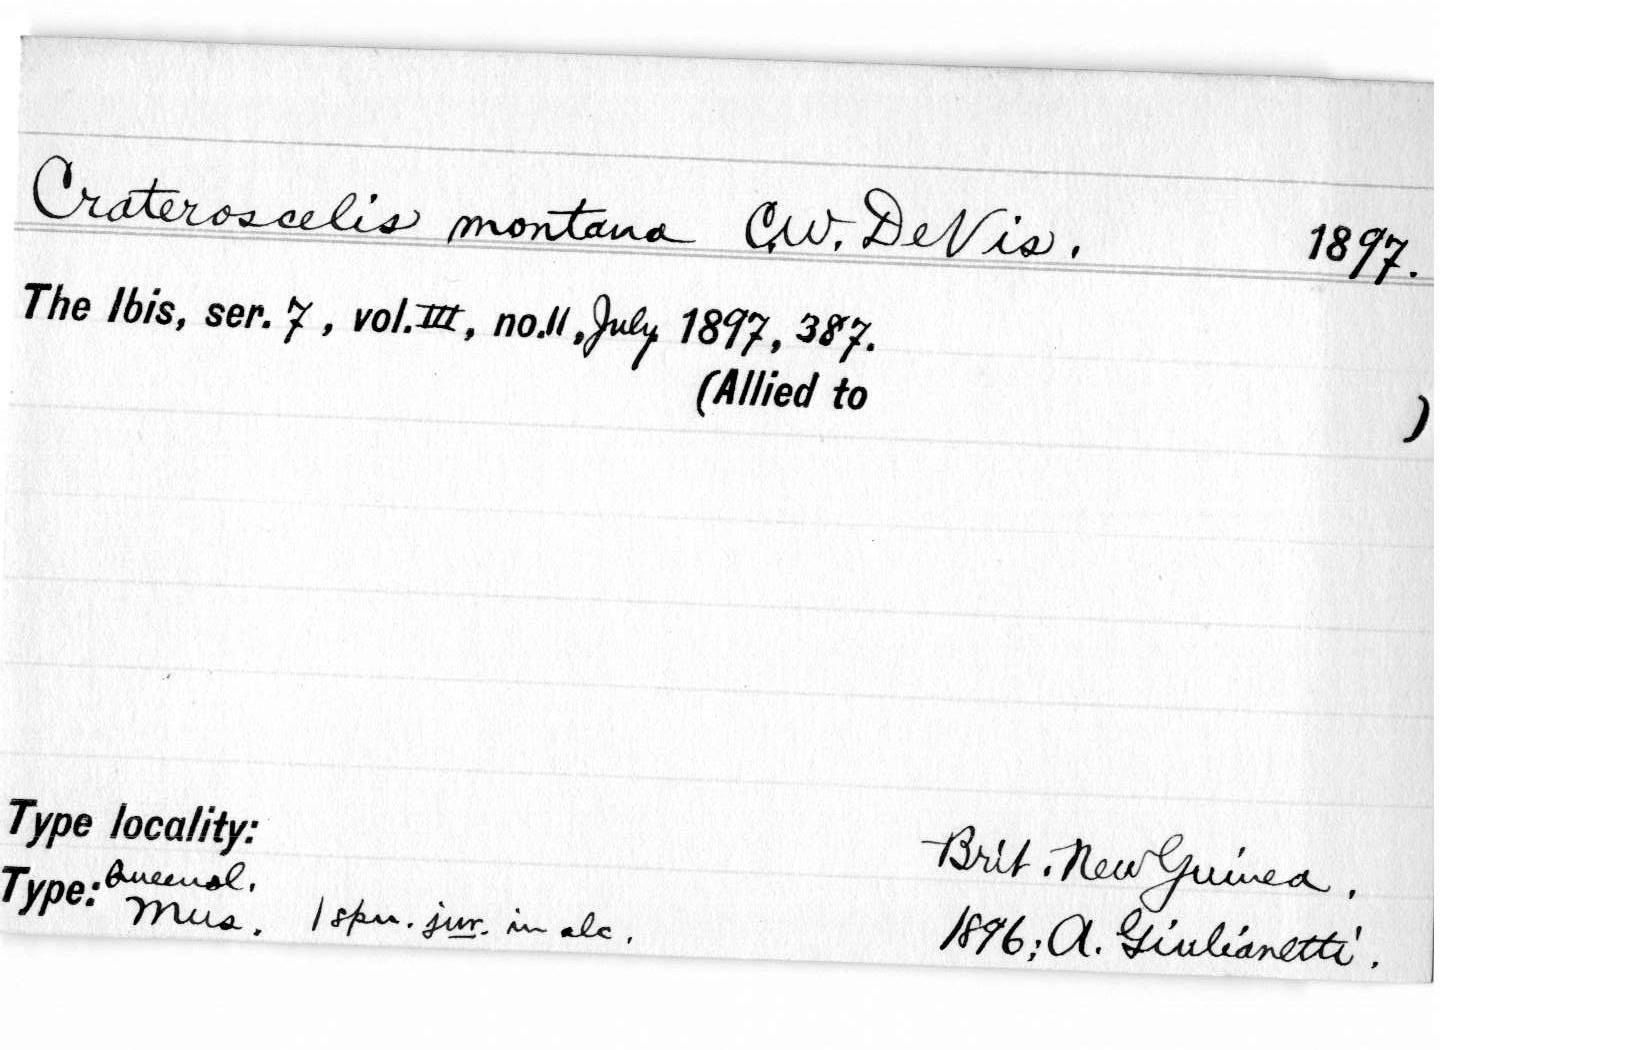 Crateroscelis montana C.W. DeVis. 1897.
The Ibis, ser. 7, vol. III, no. 11, July 1897, 387.
(Allied to )
Type locality: Brit. New Guinea.
Type: Queensl.
Mus. 1 spn. juv. in alc. 1896; A. Giulianetti.